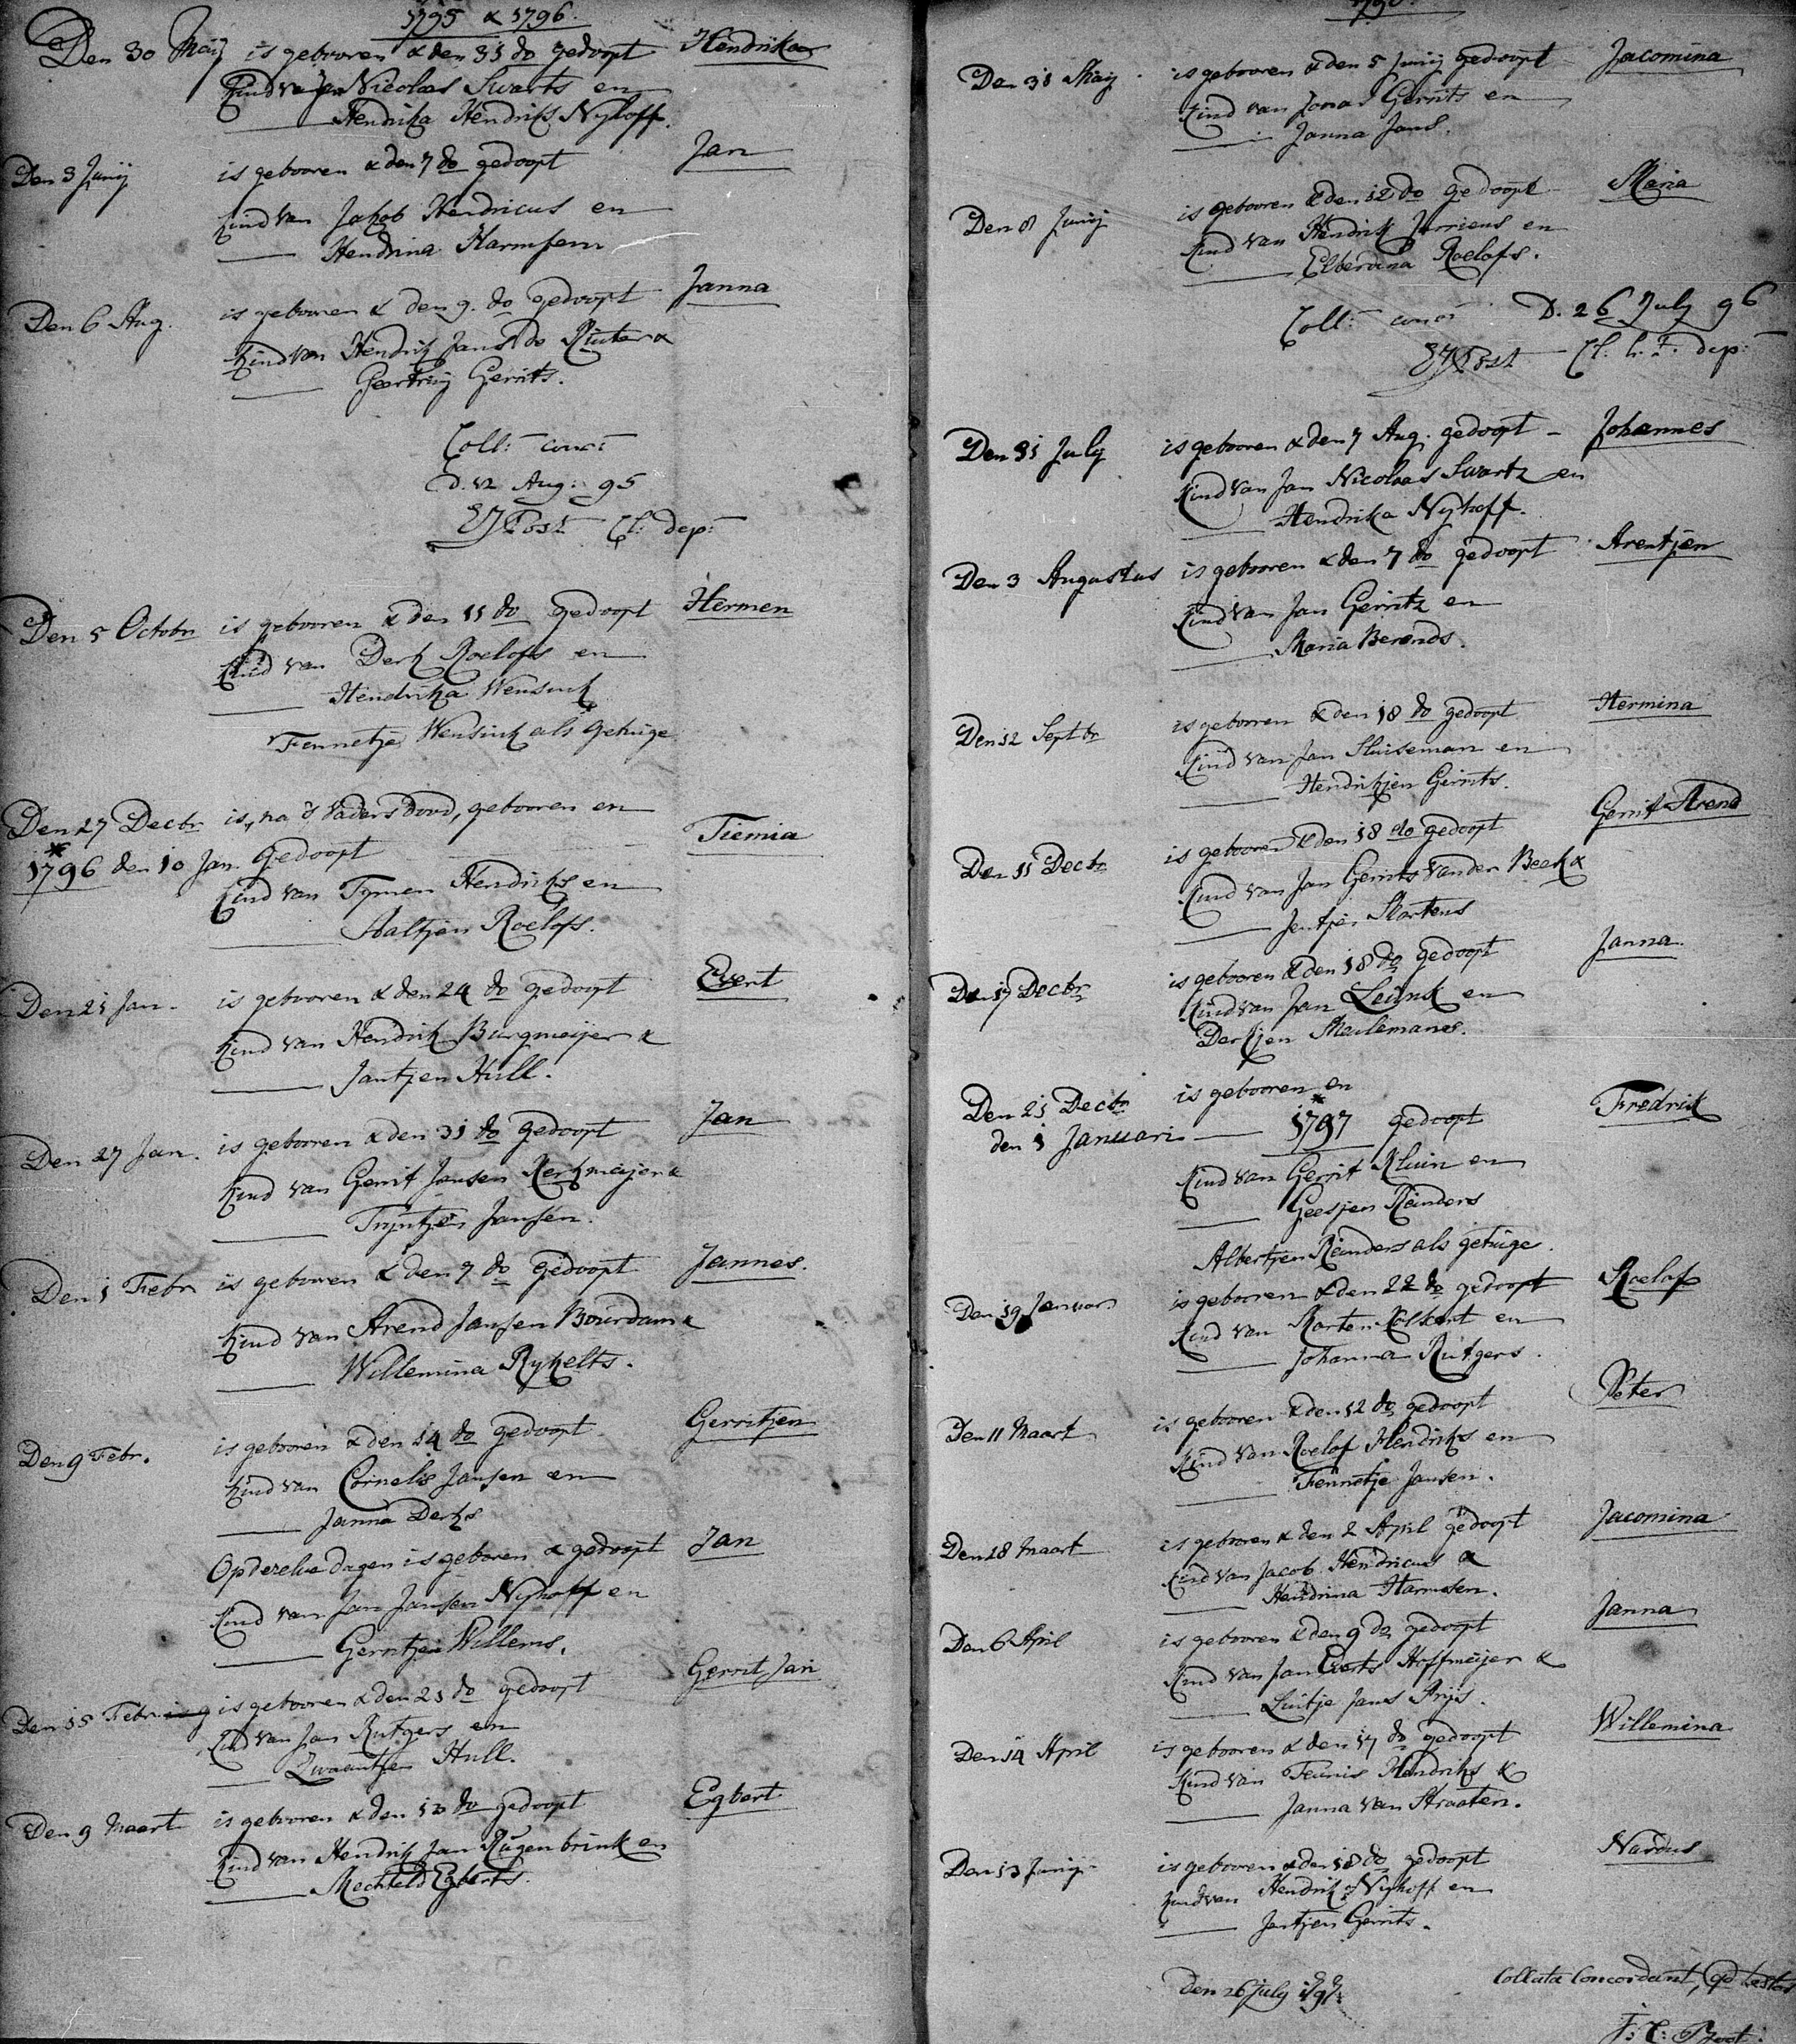 1795 & 1796.
Den 30 Maij is gebooren & den 31 do gedoopt Hendrika
Kind van Jan Nicolaas Swarts en
Hendrika Hendriks Nyhoff.
Den 3 Junij is gebooren & den 7 do gedoopt Jan
Kind van Jakob Hendricus en
Hendrina Harmsem
Den 6 Aug. is gebooren & den 9. do gedoopt Janna
Kind van Hendrik Jans de Ruiter &
Geertruij Gerrits.
Coll: conc:
d. 12 Aug: 95
Post Cl: dep:
Den 5 Octobr is gebooren & den 11 do gedoopt Hermen
Kind van Derk Roelofs en
Hendrika Wensink
Fennetje Wensink als Getuige
Den 27 Decbr is, na 's Vaders dood, gebooren en
1796 den 10 Jan. Gedoopt Tiemia
Kind van Tymen Hendriks en
Aaltjen Roelofs.
Den 21 Jan. is gebooren & den 24 do gedoopt Evert
Kind van Hendrik Burgmeijer &
Jantjen Hull.
Den 27 Jan. is gebooren & den 31 do gedoopt Jan
Kind van Gerrit Jansen Kerkmeijer &
Trijntjen Jansen.
Den 1 Febr is gebooren & den 7 do gedoopt Jannes.
Kind van Arend Jansen Bourdam &
Willemina Rykelts.
Den 9 Febr. is gebooren & den 14 do gedoopt Gerritjen
Kind van Cornelis Jansen en
Janna Derks
Op dezelve dagen is geboren & gedoopt Jan
Kind van Jan Jansen Nyhoff en
Gerritjen Willems.
Den 15 Febr is gebooren & den 21 do gedoopt Gerrit Jan
Kind van Jan Rutgers en
Zwaantje Hull.
Den 9 Maart is gebooren & den 13 do gedoopt Egbert
Kind van Hendrik Jan Rugenbrink en
Mechteld Egberts.
1796.
Den 31 Maij is gebooren & den 5 Junij gedoopt Jacomina
Kind van Jonas Gerrits en
Janna Jans.
Den 8 Junij is gebooren & den 12 do gedoopt Maria
Kind van Hendrik Jurriens en
Elberdina Roelofs.
Coll: conc: D. 26 July 96
Post Cl. dep:
Den 31 July is gebooren & den 7 Aug. gedoopt Johannes
Kind van Jan Nicolaas Swartz en
Hendrika Nyhoff.
Den 3 Augustus is gebooren & den 7 do gedoopt Arentjen
Kind van Jan Gerritz en
Maria Berends.
Den 12 Septbr is gebooren & den 18 do gedoopt Hermina
Kind van Jan Sluiseman en
Hendrikjen Gerrits.
Den 11 Decbr is gebooren & den 18 do gedoopt Gerrit Arend
Kind van Jan Gerrits Van den Beek &
Jentjen Martens
Den 17 Decbr is gebooren & den 18 do gedoopt Janna
Kind van Jan Leunk en
Derkjen Meulemans.
Den 21 Decbr is gebooren en
den 1 Januari 1797 gedoopt Fredrik
Kind van Gerrit Kluin en
Geesjen Reinders
Albertjen Reinders als getuige.
Den 19 Januar. is gebooren & den 22 do gedoopt Roelof
Kind van Marten Kolkert en
Johanna Rutgers.
Den 11 Maart is gebooren & den 12 do gedoopt Peter
Kind van Roelof Hendriks en
Fennetje Jansen.
Den 28 Maart is gebooren & den 2 April gedoopt Jacomina
Kind van Jacob Hendricus &
Hendrina Harmsen.
Den 6 April is gebooren & den 9 do gedoopt Janna
Kind van Jan Everts Hoffmeijer &
Luitje Jans Prijs.
Den 14 April is gebooren & den 17 do gedoopt Willemina
Kind van Teunis Hendriks &
Janna van Straaten.
Den 13 Junij is gebooren & den 18 do gedoopt Nardus
Kind van Hendrik Nyhoff en
Jentjen Gerrits.
den 26 July 1797. Collata Concordant, qd testor